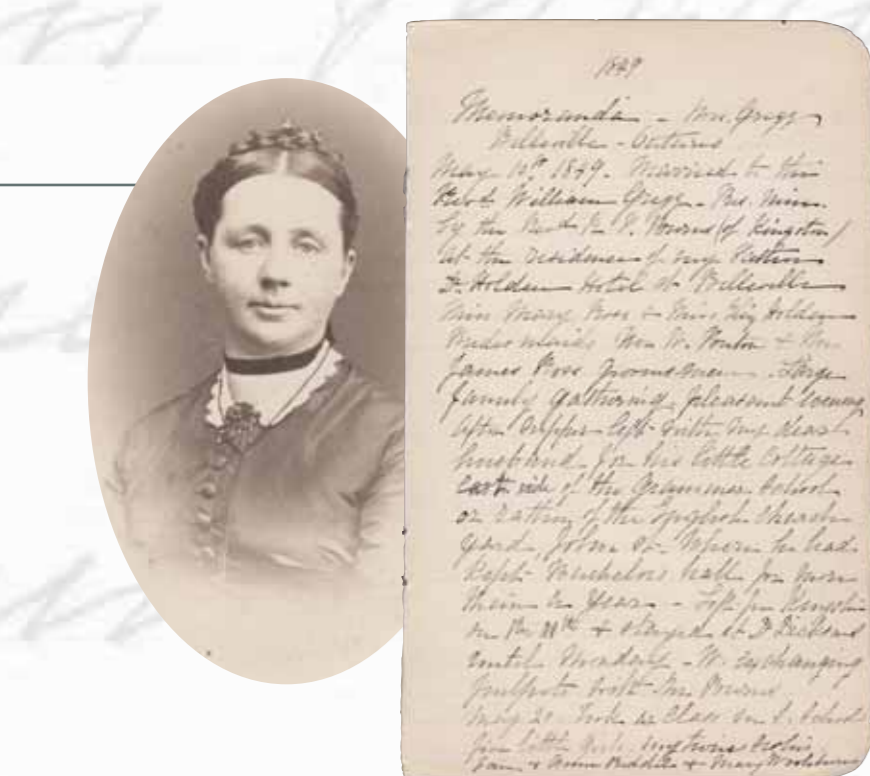 1849
Memoranda - Mrs. Gregg
Belleville - Ontario
May 10th 1849. Married to the
Revd. William Gregg - Pres. Min.
by the Revd. of Kingston)
at the residence of my Father
Dr. Holden Hotel St Belleville
Miss Mary Ross + Miss Holden
Brides maids Mr. W. Ponton + Mr.
James Ross Groomsmen. Large
family gathering. pleasant evening
after supper left with my dear
husband for his little Cottage
east side of the Grammar School
or rather of the English Church
yard, where he had
Kept Bachelors hall for more
than a Year - Left for Kingston
on the 11th + stayed at Dr Dicksons
until Monday - W. exchanging
pulpits with Mr.
May 20 Took a Class in S. School
five little girls, my twin
Fan + Annie + Mary